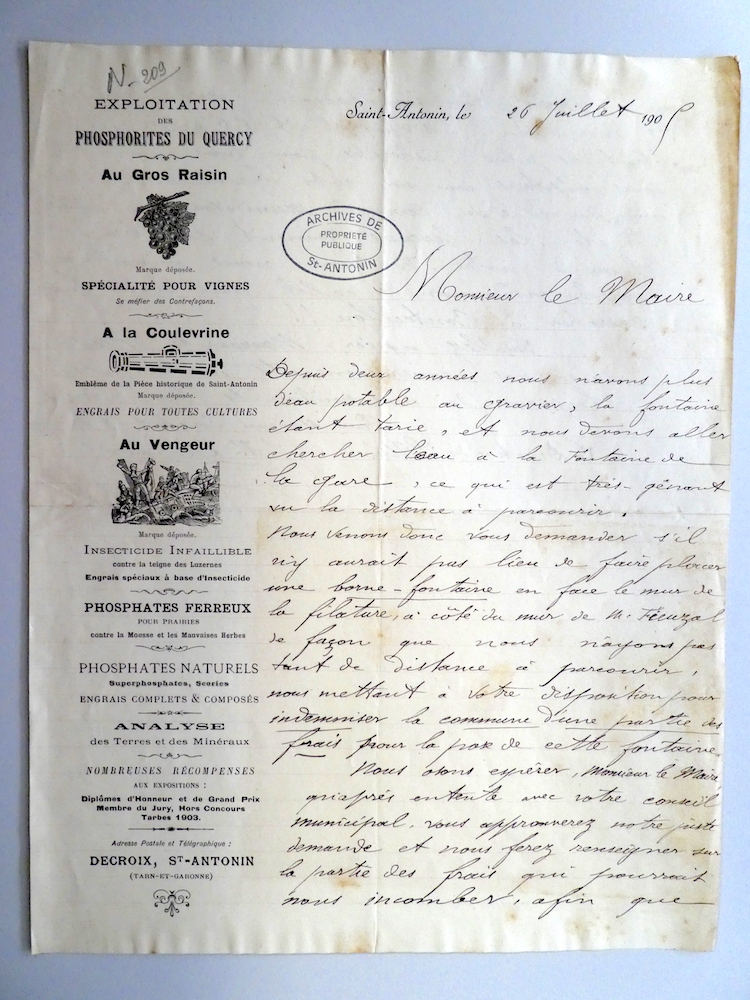 N- 209
EXPLOITATION
DES
PHOSPHORITES DU QUERCY
Au Gros Raisin
Marque déposée.
SPÉCIALITÉ POUR VIGNES
Se méfier des Contrefaçons.
A la Coulevrine
Emblème de la Pièce historique de Saint-Antonin
Marque déposée.
ENGRAIS POUR TOUTES CULTURES
Au Vengeur
Marque déposée.
INSECTICIDE INFAILLIBLE
contre la teigne des Luzernes
Engrais spéciaux à base d'Insecticide
PHOSPHATES FERREUX
POUR PRAIRIES
contre la Mousse et les Mauvaises Herbes
PHOSPHATES NATURELS
Superphosphates, Scories
ENGRAIS COMPLETS & COMPOSÉS
ANALYSE
des Terres et des Minéraux
NOMBREUSES RÉCOMPENSES
AUX EXPOSITIONS :
Diplômes d'Honneur et de Grand Prix
Membre du Jury, Hors Concours
Tarbes 1903.
Adresse Postale et Télégraphique :
DECROIX, ST-ANTONIN
(TARN-ET-GARONNE)
Saint-Antonin, le 26 Juillet 1905
ARCHIVES DE
PROPRIETÉ
PUBLIQUE
St-ANTONIN
Monsieur le Maire
Depuis deux années nous n'avons plus
d'eau potable au gravier, la fontaine
étant tarie, et nous devons aller
chercher l'eau à la Fontaine de
la gare, ce qui est très-gênant
vu la distance à parcourir.
Nous venons donc vous demander s'il
n'y aurait pas lieu de faire placer
une borne-fontaine en face le mur de
la filature, à côté du mur de M. Fieuzal
de façon que nous n'ayons pas
tant de distance à parcourir,
nous mettant à votre disposition pour
indemniser la commune d'une partie des
frais pour la pose de cette fontaine.
Nous osons espérer, Monsieur le Maire
qu'après entente avec votre conseil
municipal, vous approuverez notre juste
demande et nous ferez renseigner sur
la partie des frais qui pourrait
nous incomber, afin que